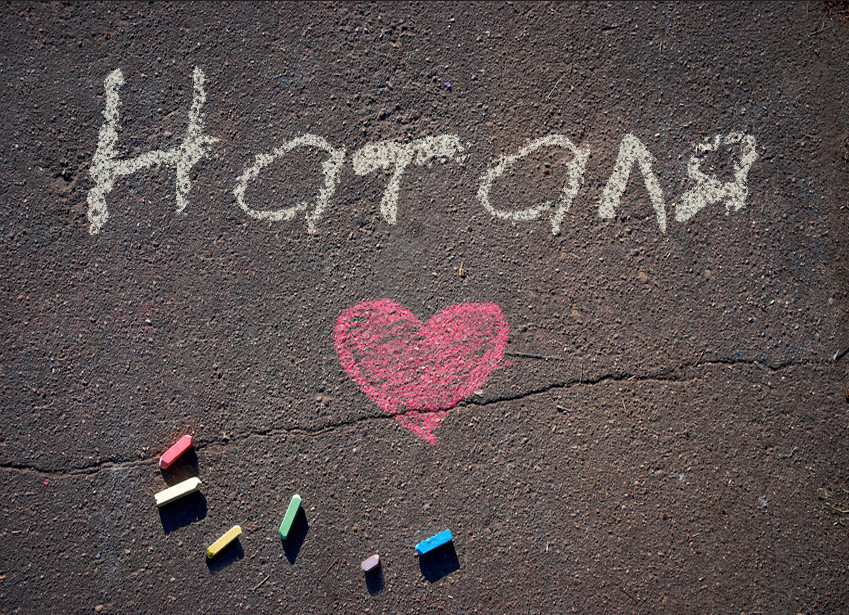 Наталя